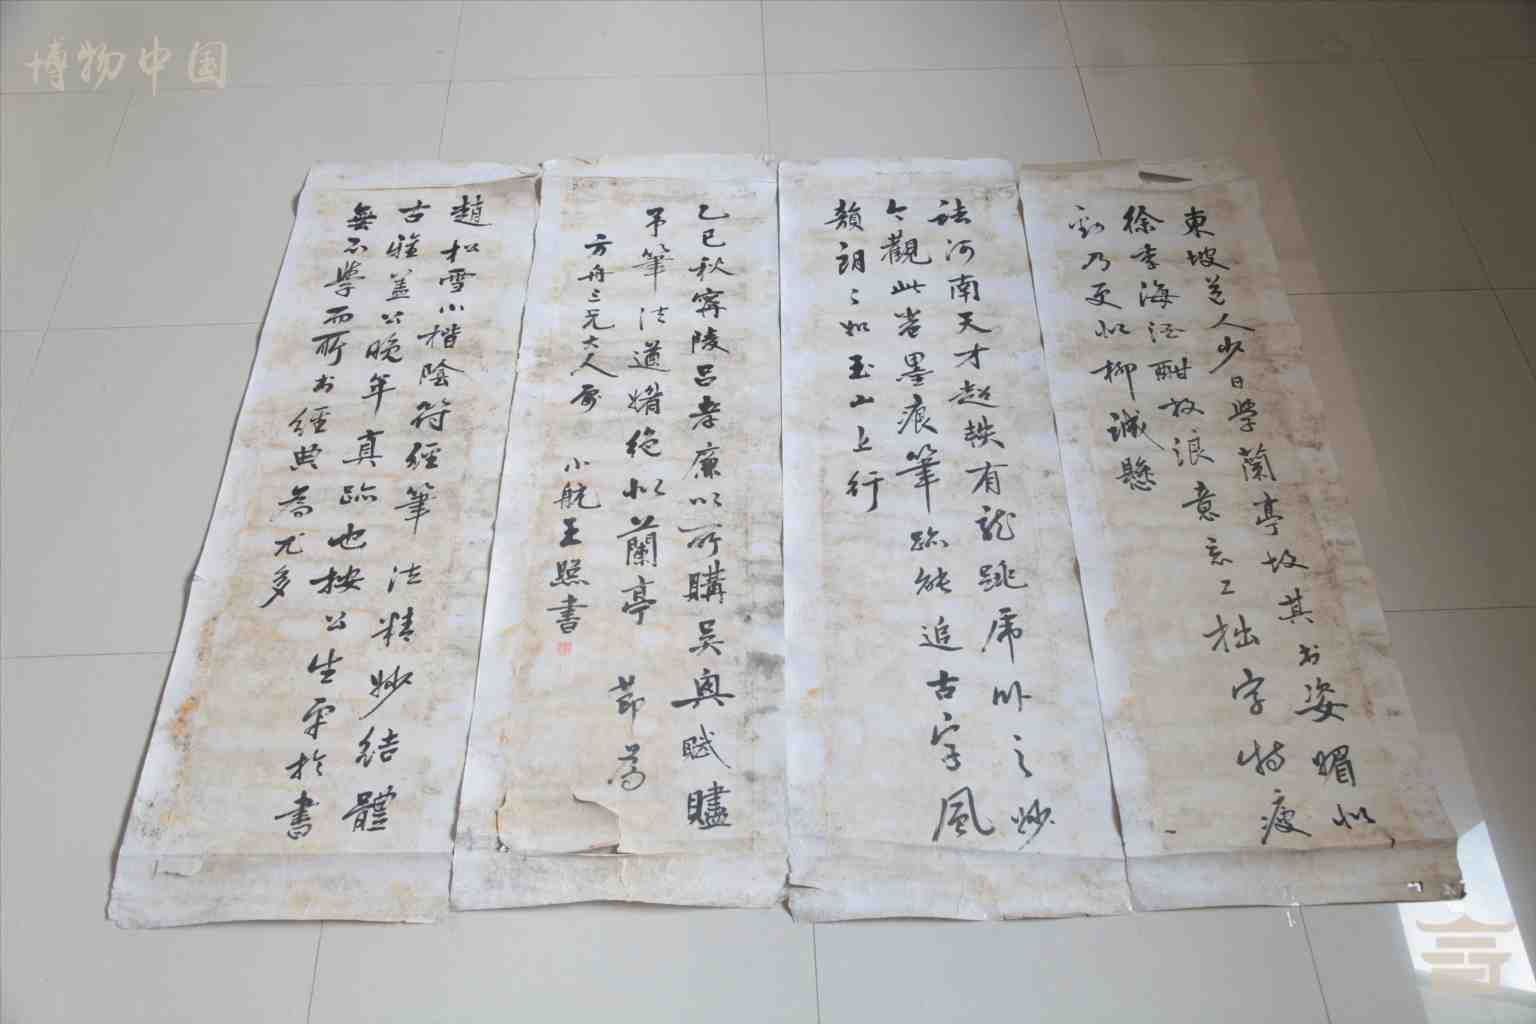 博物中国
東坡道人少日學蘭亭故其書姿媚似
徐季海至酣放浪意忘工拙字特瘦
勁乃更似柳誠懸
褚河南天才超軼有龍跳虎卧之妙
今觀此卷墨痕筆跡能追古字風
韻朗々如玉山上行
乙巳秋寧陵呂孝廉以所購吴興賦贐
予筆法遒媚絶似蘭亭 節蒡
方舟三兄大人屬 小航王照書
趙松雪小楷陰符經筆法精妙結體
古雅蓋公晚年真跡也按公生平於書
無不學而所書經典為尤多